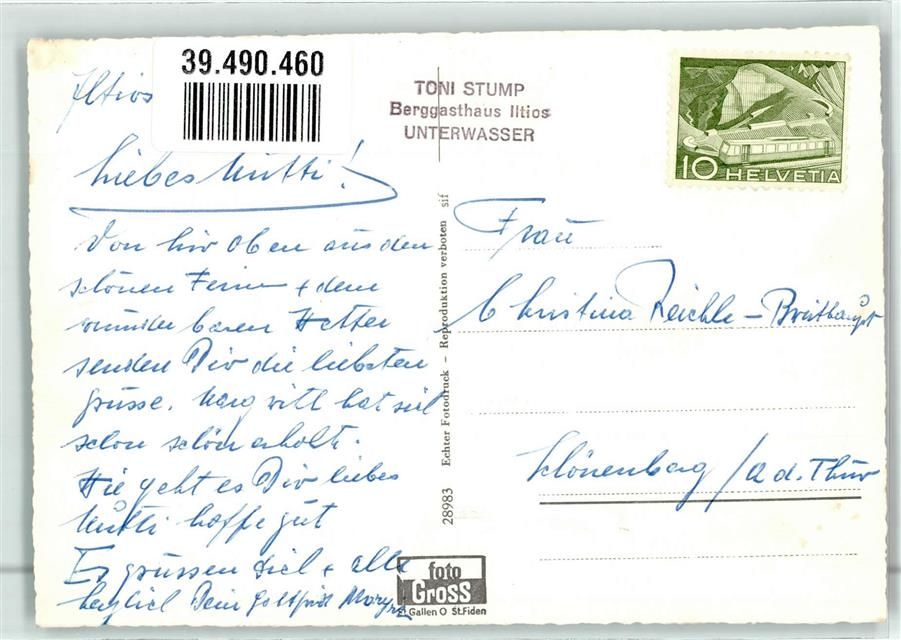 39.490.460
Iltios
Liebes Mutti!
Von hir oben aus den
schönen Ferien + dem
wunderbaren Wetter
senden Dir die liebsten
Grüsse. Margritli hat sich
schon schön erholt.
Wie geht es Dir liebes
Mutti hoffe gut
Es grüssen Dich + alle
herzlich Dein Gottfried
TONI STUMP
Berggasthaus Iltios
UNTERWASSER
10 HELVETIA
Frau
Christina Reichle - Breithaupt
Schönenberg / a d. Thur
28983 Echter Fotodruck - Reproduktion verboten sif
foto
Gross
St.Gallen O St.Fiden